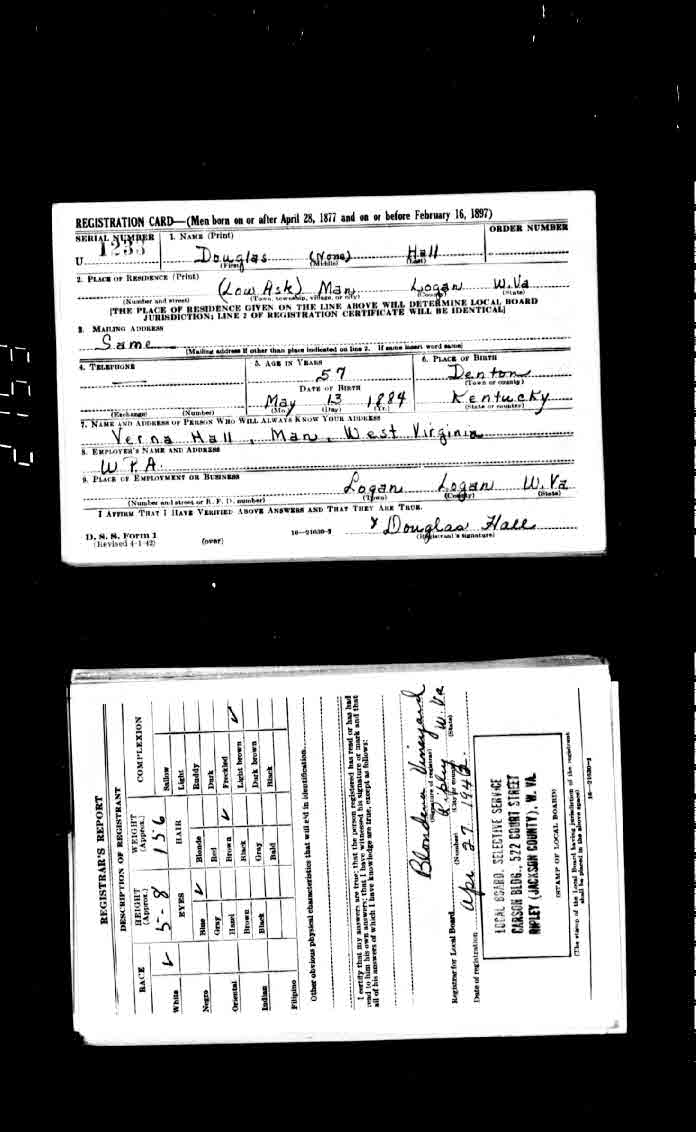 REGISTRATION CARD—(Men born on or after April 28, 1877 and on or before February 16, 1897)
SERIAL NUMBER 1. NAME (Print) ORDER NUMBER
U 1233 Douglas (None) Hall
(First) (Middle) (Last)
2. PLACE OF RESIDENCE (Print)
(Low Ash) Man Logan W.Va
(Number and street) (Town, township, village, or city) (County) (State)
[THE PLACE OF RESIDENCE GIVEN ON THE LINE ABOVE WILL DETERMINE LOCAL BOARD
JURISDICTION; LINE 2 OF REGISTRATION CERTIFICATE WILL BE IDENTICAL]
3. MAILING ADDRESS
Same
[Mailing address if other than place indicated on line 2. If same insert word same]
4. TELEPHONE 5. AGE IN YEARS 6. PLACE OF BIRTH
57 Denton
DATE OF BIRTH (Town or county)
May 13 1884 Kentucky
(Exchange) (Number) (Mo.) (Day) (Yr.) (State or country)
7. NAME AND ADDRESS OF PERSON WHO WILL ALWAYS KNOW YOUR ADDRESS
Verna Hall, Man, West Virginia
8. EMPLOYER'S NAME AND ADDRESS
W.P.A.
9. PLACE OF EMPLOYMENT OR BUSINESS
Logan Logan W.Va
(Number and street or R. F. D. number) (Town) (County) (State)
I AFFIRM THAT I HAVE VERIFIED ABOVE ANSWERS AND THAT THEY ARE TRUE.
x Douglas Hall
D. S. S. Form 1 (Registrant's signature)
(Revised 4-1-42) (over) 16—21630-2
REGISTRAR'S REPORT
DESCRIPTION OF REGISTRANT
RACE HEIGHT (Approx.) WEIGHT (Approx.) COMPLEXION
5-8 156 Sallow
White EYES HAIR Light
Blue Blonde Ruddy
Negro Gray Red Dark
Hazel Brown Freckled
Oriental Brown Black Light brown
Black Gray Dark brown
Indian Bald Black
Filipino
Other obvious physical characteristics that will aid in identification
I certify that my answers are true; that the person registered has read or has had
read to him his own answers; that I have witnessed his signature or mark and that
all of his answers of which I have knowledge are true, except as follows:
Blondena Vineyard
(Signature of registrar)
Registrar for Local Board Ripley W.Va
(Number) (City or county) (State)
Date of registration Apr 27 1942
LOCAL BOARD, SELECTIVE SERVICE
CARSON BLDG., 522 COURT STREET
RIPLEY (JACKSON COUNTY), W. VA.
(STAMP OF LOCAL BOARD)
(The stamp of the Local Board having jurisdiction of the registrant
shall be placed in the above space)
16—21630-2